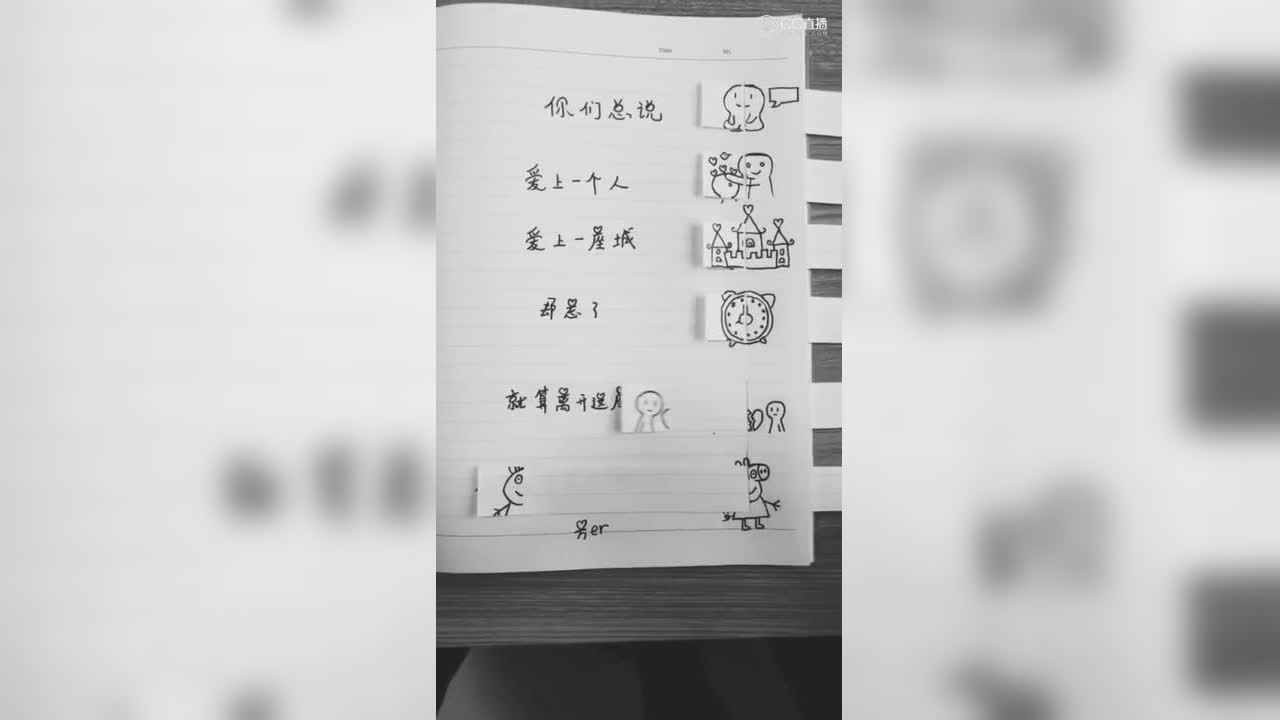 直播
你们总说
爱上一个人
爱上一座城
却忘了
就算离开这座
另er